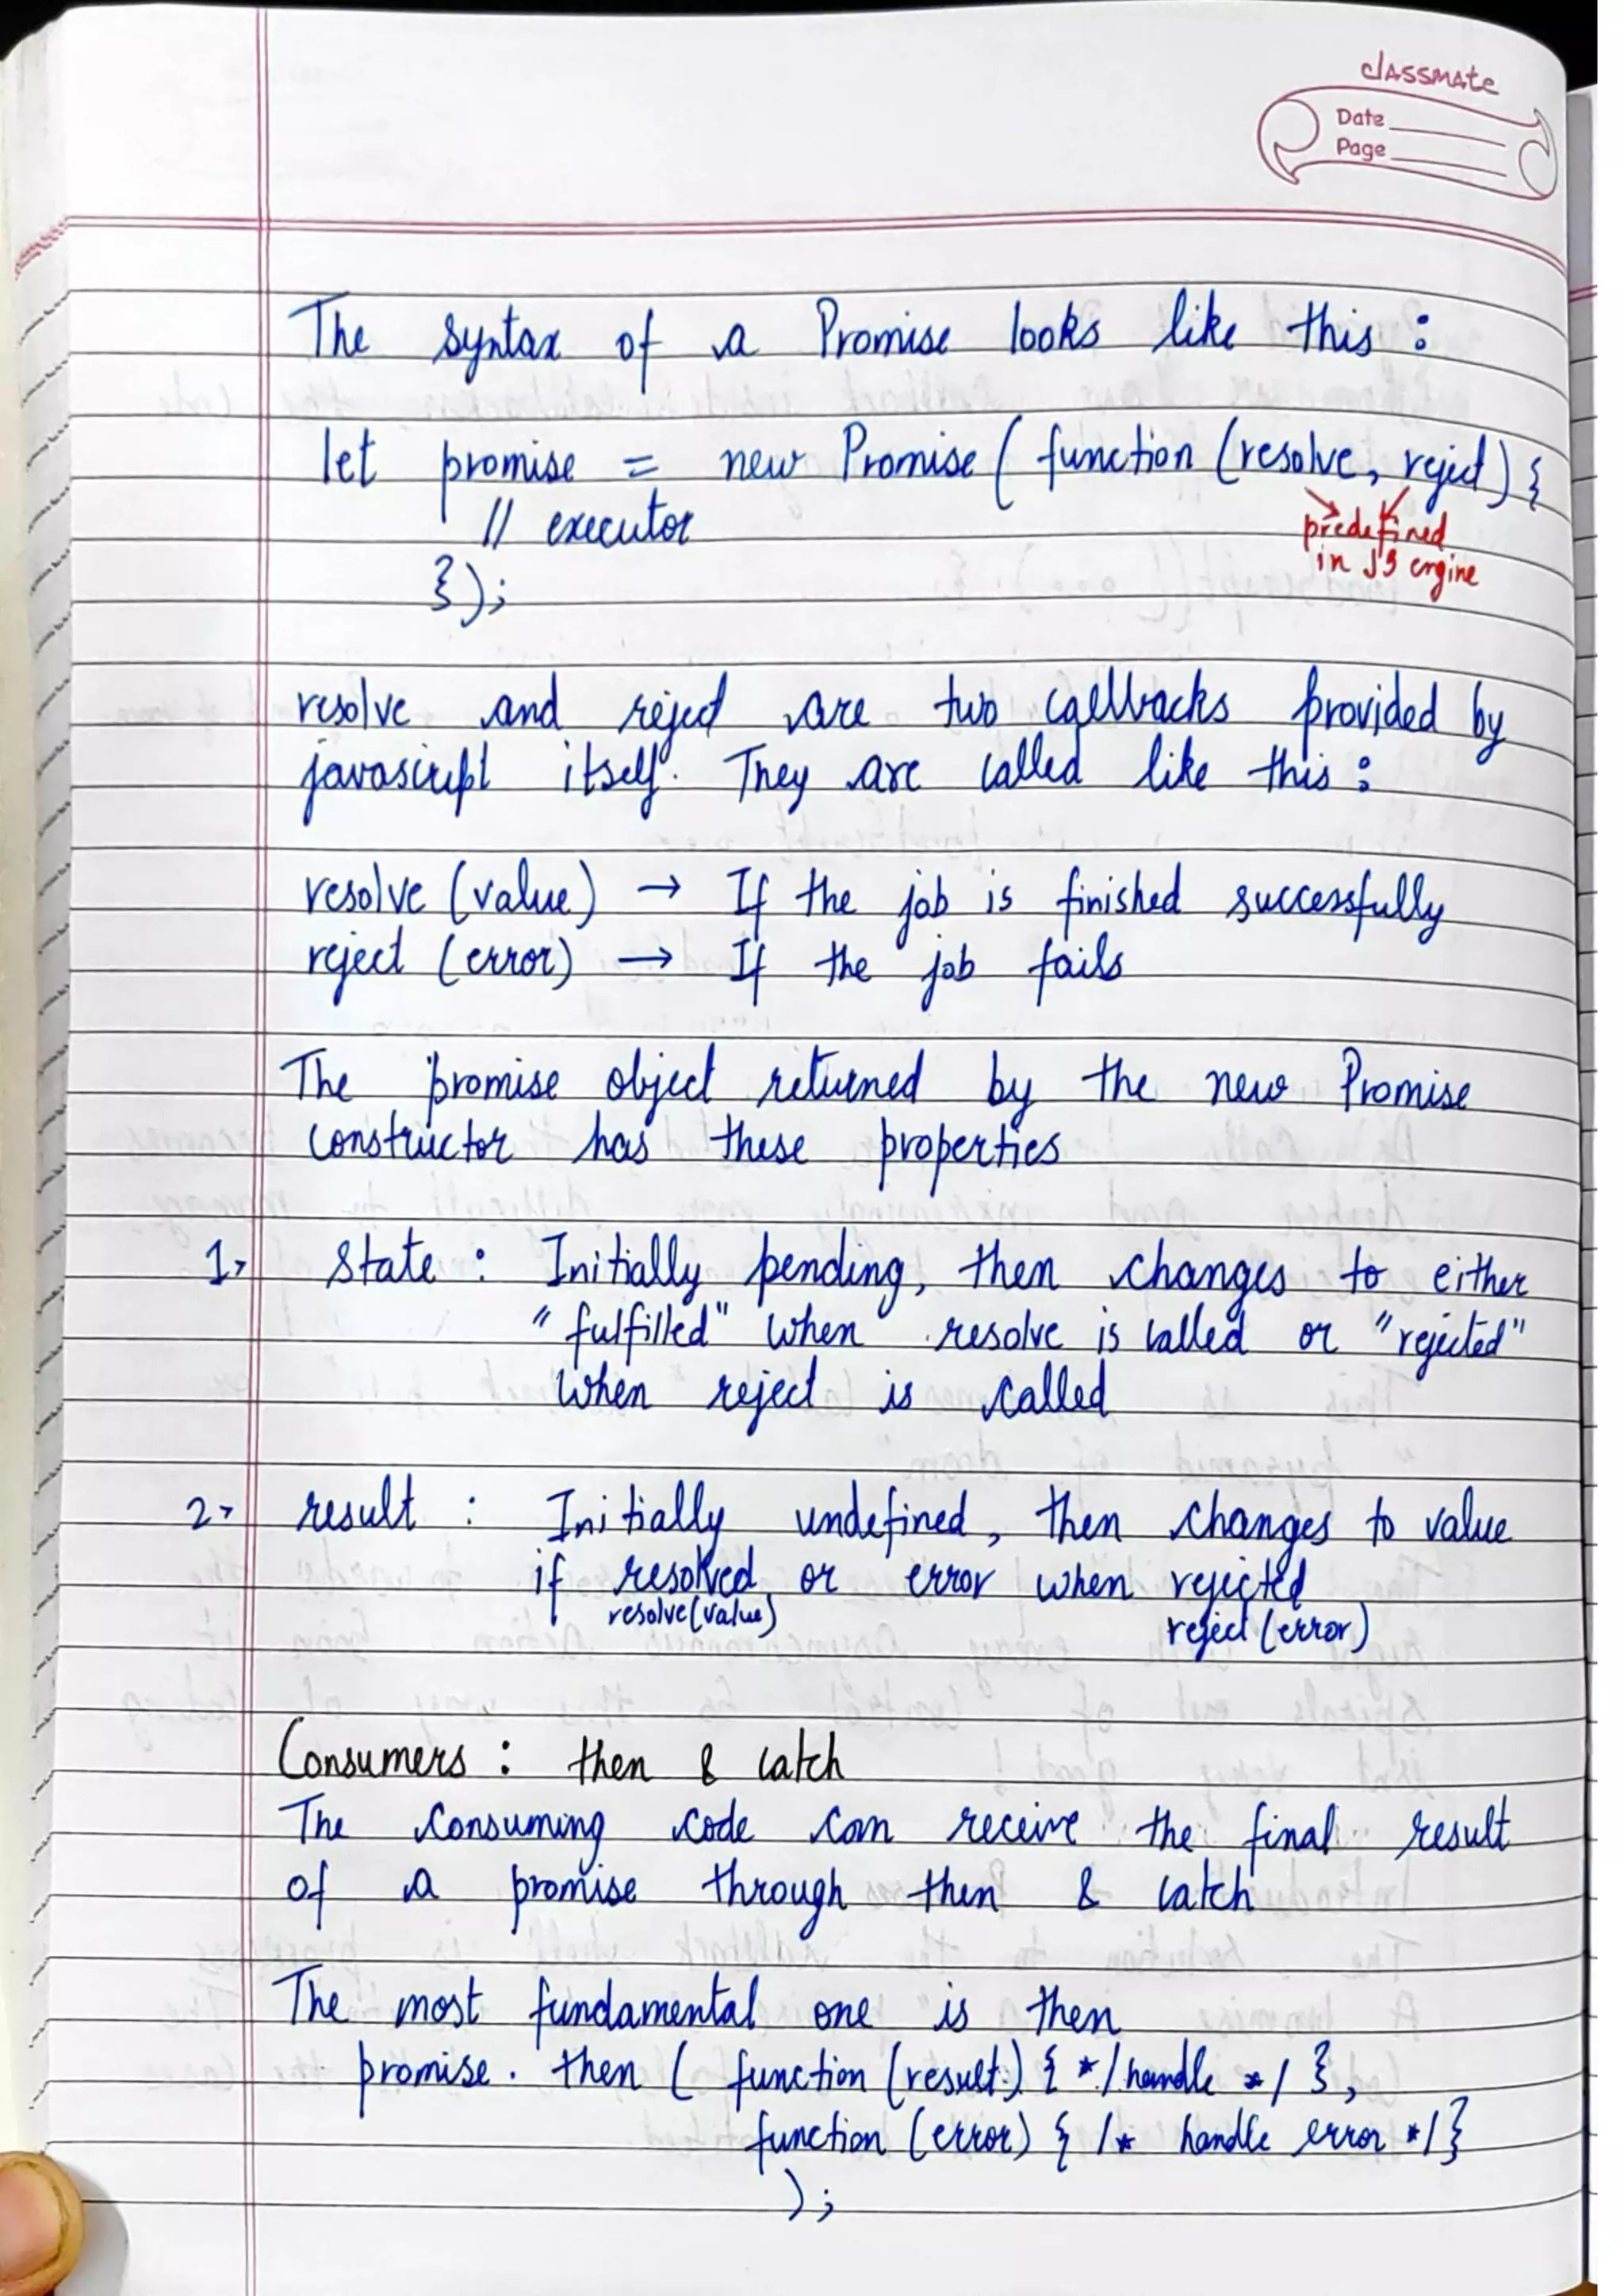 classmate
Date
Page
The syntax of a Promise looks like this :
let promise = new Promise ( function (resolve, reject) {
// executor
predefined
in JS engine
});
resolve and reject are two callbacks provided by
javascript itself. They are called like this :
resolve (value) → If the job is finished successfully
reject (error) → If the job fails
The promise object returned by the new Promise
constructor has these properties
1, state : Initially pending, then changes to either
"fulfilled" when resolve is called or "rejected"
when reject is called
2, result : Initially undefined, then changes to value
if resolved or error when rejected
resolve(value) reject (error)
Consumers : then & catch
The consuming code can receive the final result
of a promise through then & catch
The most fundamental one is then
promise . then ( function (result) { */ handle */ },
function (error) { /* handle error */ }
);